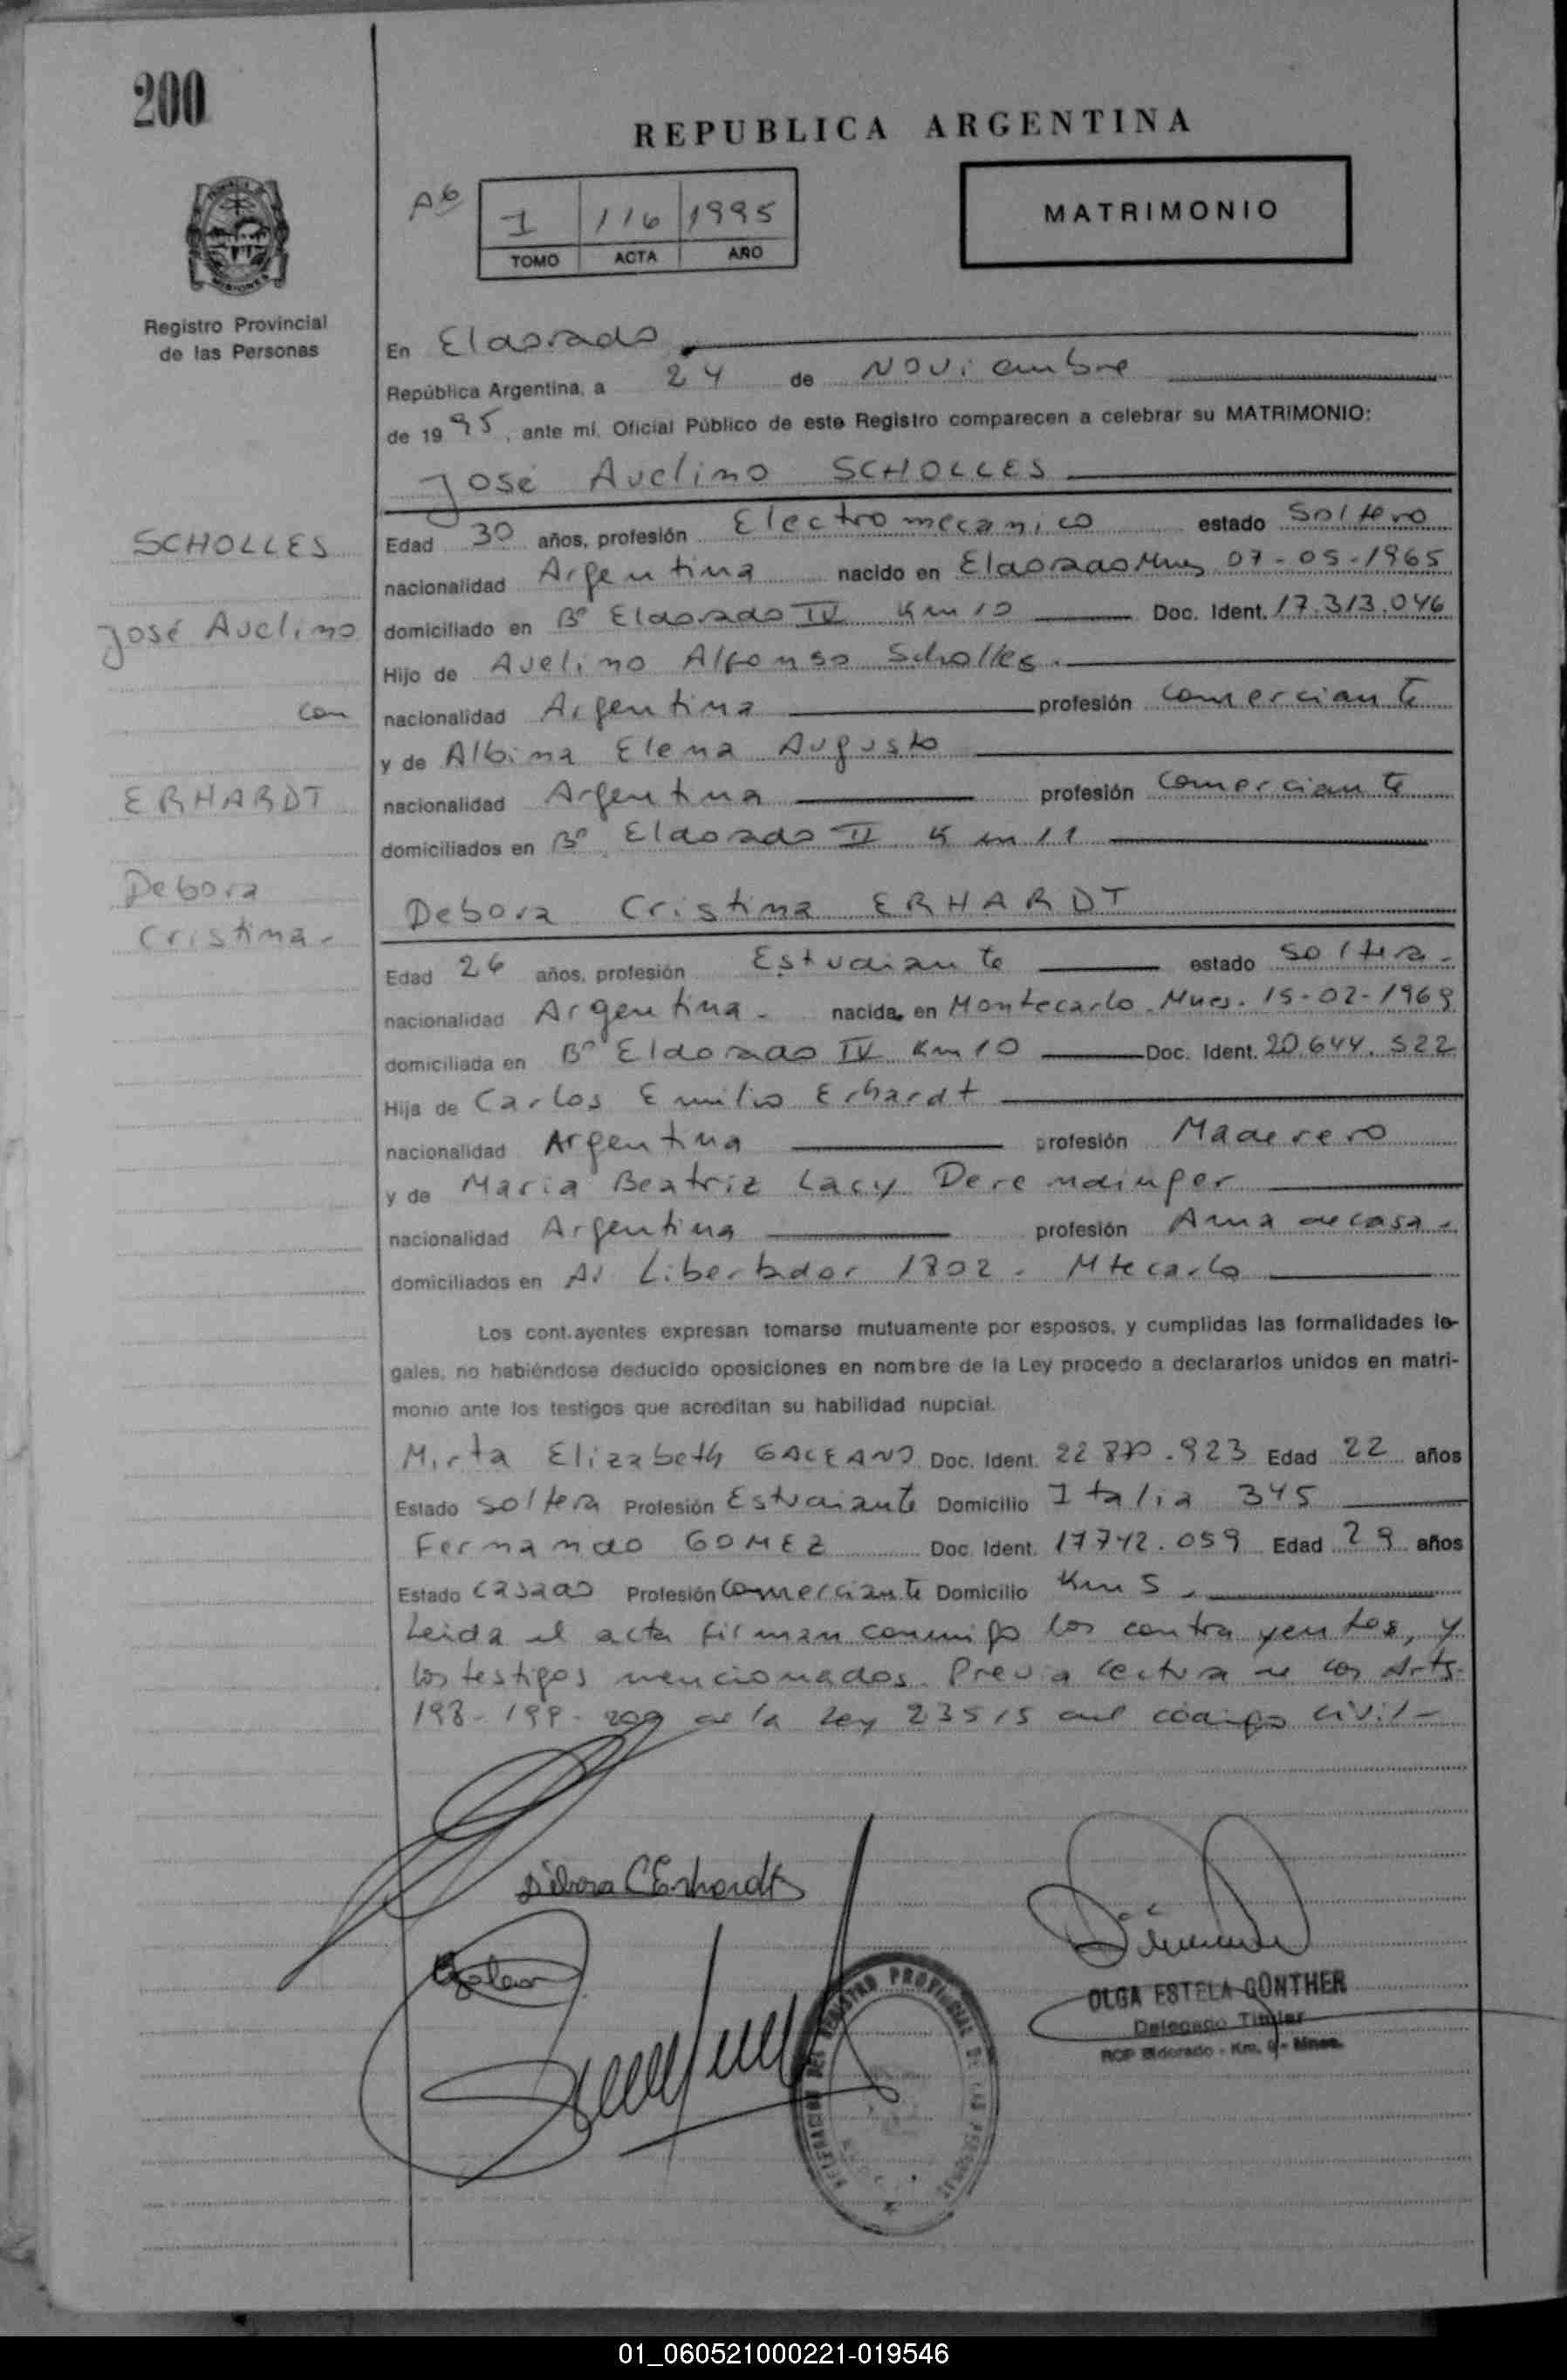 200
REPUBLICA ARGENTINA
MATRIMONIO
I 116 1995
TOMO ACTA AÑO
MISIONES
Registro Provincial
de las Personas
En Eldorado
República Argentina, a 24 de Noviembre
de 1995, ante mí, Oficial Público de este Registro comparecen a celebrar su MATRIMONIO:
José Avelino SCHOLLES
SCHOLLES
José Avelino
con
ERHARDT
Debora
Cristina.-
Edad 30 años, profesión Electromecanico estado Soltero
nacionalidad Argentina nacido en Eldorado Mnes 07-05-1965
domiciliado en Bº Eldorado IV Km 10 Doc. Ident. 17.313.046
Hijo de Avelino Alfonso Scholles.
nacionalidad Argentina profesión Comerciante
y de Albina Elena Augusto
nacionalidad Argentina profesión Comerciante
domiciliados en Bº Eldorado II Km 11
Debora Cristina ERHARDT
Edad 26 años, profesión Estudiante estado Soltera-
nacionalidad Argentina- nacida en Montecarlo. Mnes. 15-02-1969
domiciliada en Bº Eldorado IV Km 10 Doc. Ident. 20.644.522
Hija de Carlos Emilio Erhardt
nacionalidad Argentina profesión Maderero
y de Maria Beatriz Lacy Derendinger
nacionalidad Argentina profesión Ama de casa-
domiciliados en Av Libertador 1802. Mtecarlo
Los contrayentes expresan tomarse mutuamente por esposos, y cumplidas las formalidades le-
gales, no habiéndose deducido oposiciones en nombre de la Ley procedo a declararlos unidos en matri-
monio ante los testigos que acreditan su habilidad nupcial.
Mirta Elizabeth GALEANO Doc. Ident. 22.870.923 Edad 22 años
Estado Soltera Profesión Estudiante Domicilio Italia 345
Fernando GOMEZ Doc. Ident. 17742.059 Edad 29 años
Estado Casado Profesión Comerciante Domicilio Km 5
Leida el acta firman conmigo los contrayentes, y
los testigos mencionados. Previa lectura de los Arts.
198-199-200 de la Ley 23515 del código civil-
Débora C Erhardt
OLGA ESTELA GÜNTHER
Delegado Titular
RCP Eldorado - Km. 9 - Mnes.
01_060521000221-019546